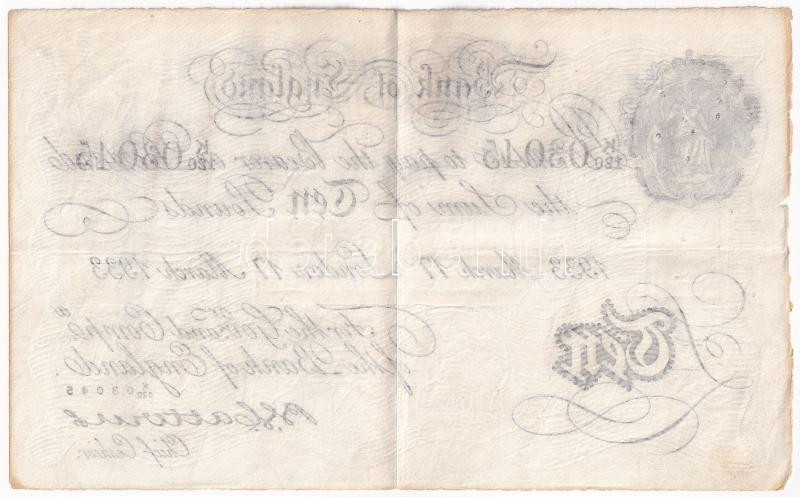 Bank of England
K/120 03045 to pay the Bearer K/120 03045
the Sum of Ten Pounds
darabanth
1933 March 17 London 17 March 1933
For the Gov.r and Comp.a
of the Bank of England.
K/120 03045
Ten
B.G. Catterns
Chief Cashier